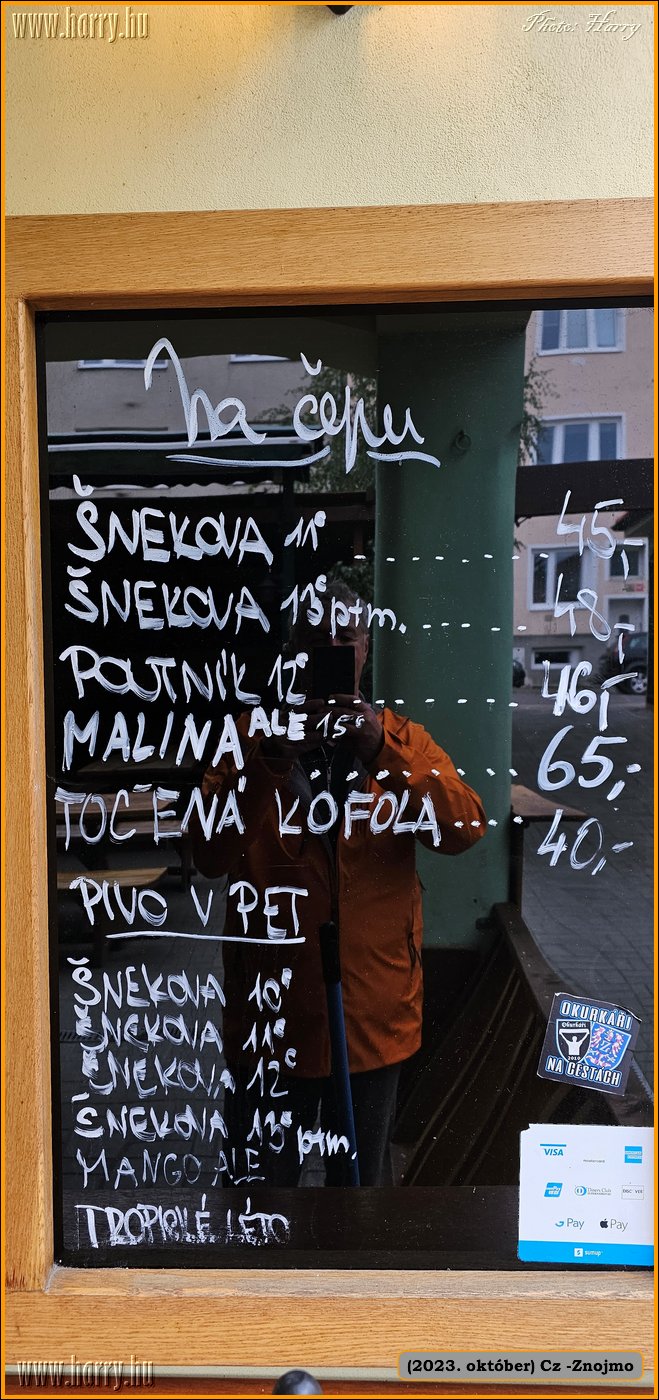 www.harry.hu
Photo: Harry
Na čepu
ŠNEKOVA 11° ........ 45,-
ŠNEKOVA 13° ptm. ..... 48,-
POUTNÍK 12° ....... 46,-
MALINA ALE 15° ....... 65,-
TOČENÁ KOFOLA ... 40,-
PIVO V PET
ŠNEKOVA 10°
ŠNEKOVA 11°
ŠNEKOVA 12°
ŠNEKOVA 13° ptm.
MANGO ALE
TROPICKÉ LÉTO
OKURKÁŘI
Okurkáři
2010
NA CESTÁCH
VISA
Diners Club
DISCOVER
G Pay
Pay
sumup
www.harry.hu
(2023. október) Cz -Znojmo